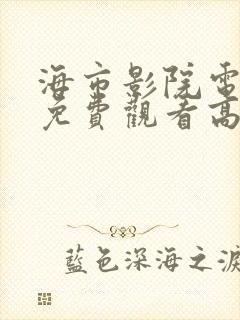 海市影院電
免費觀看高
藍色深海之淚